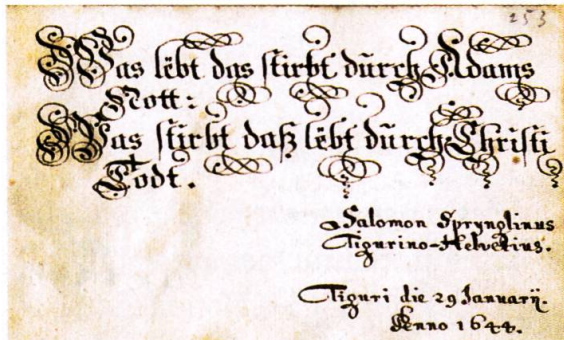 253
Was lëbt das stirbt dŭrch Adams
Nott:
Was stirbt daß lëbt dŭrch Christi
Todt.
Salomon Sprynglinus
Tigurino-Helvetius.
Tiguri die 29 Januarij.
Anno 1644.